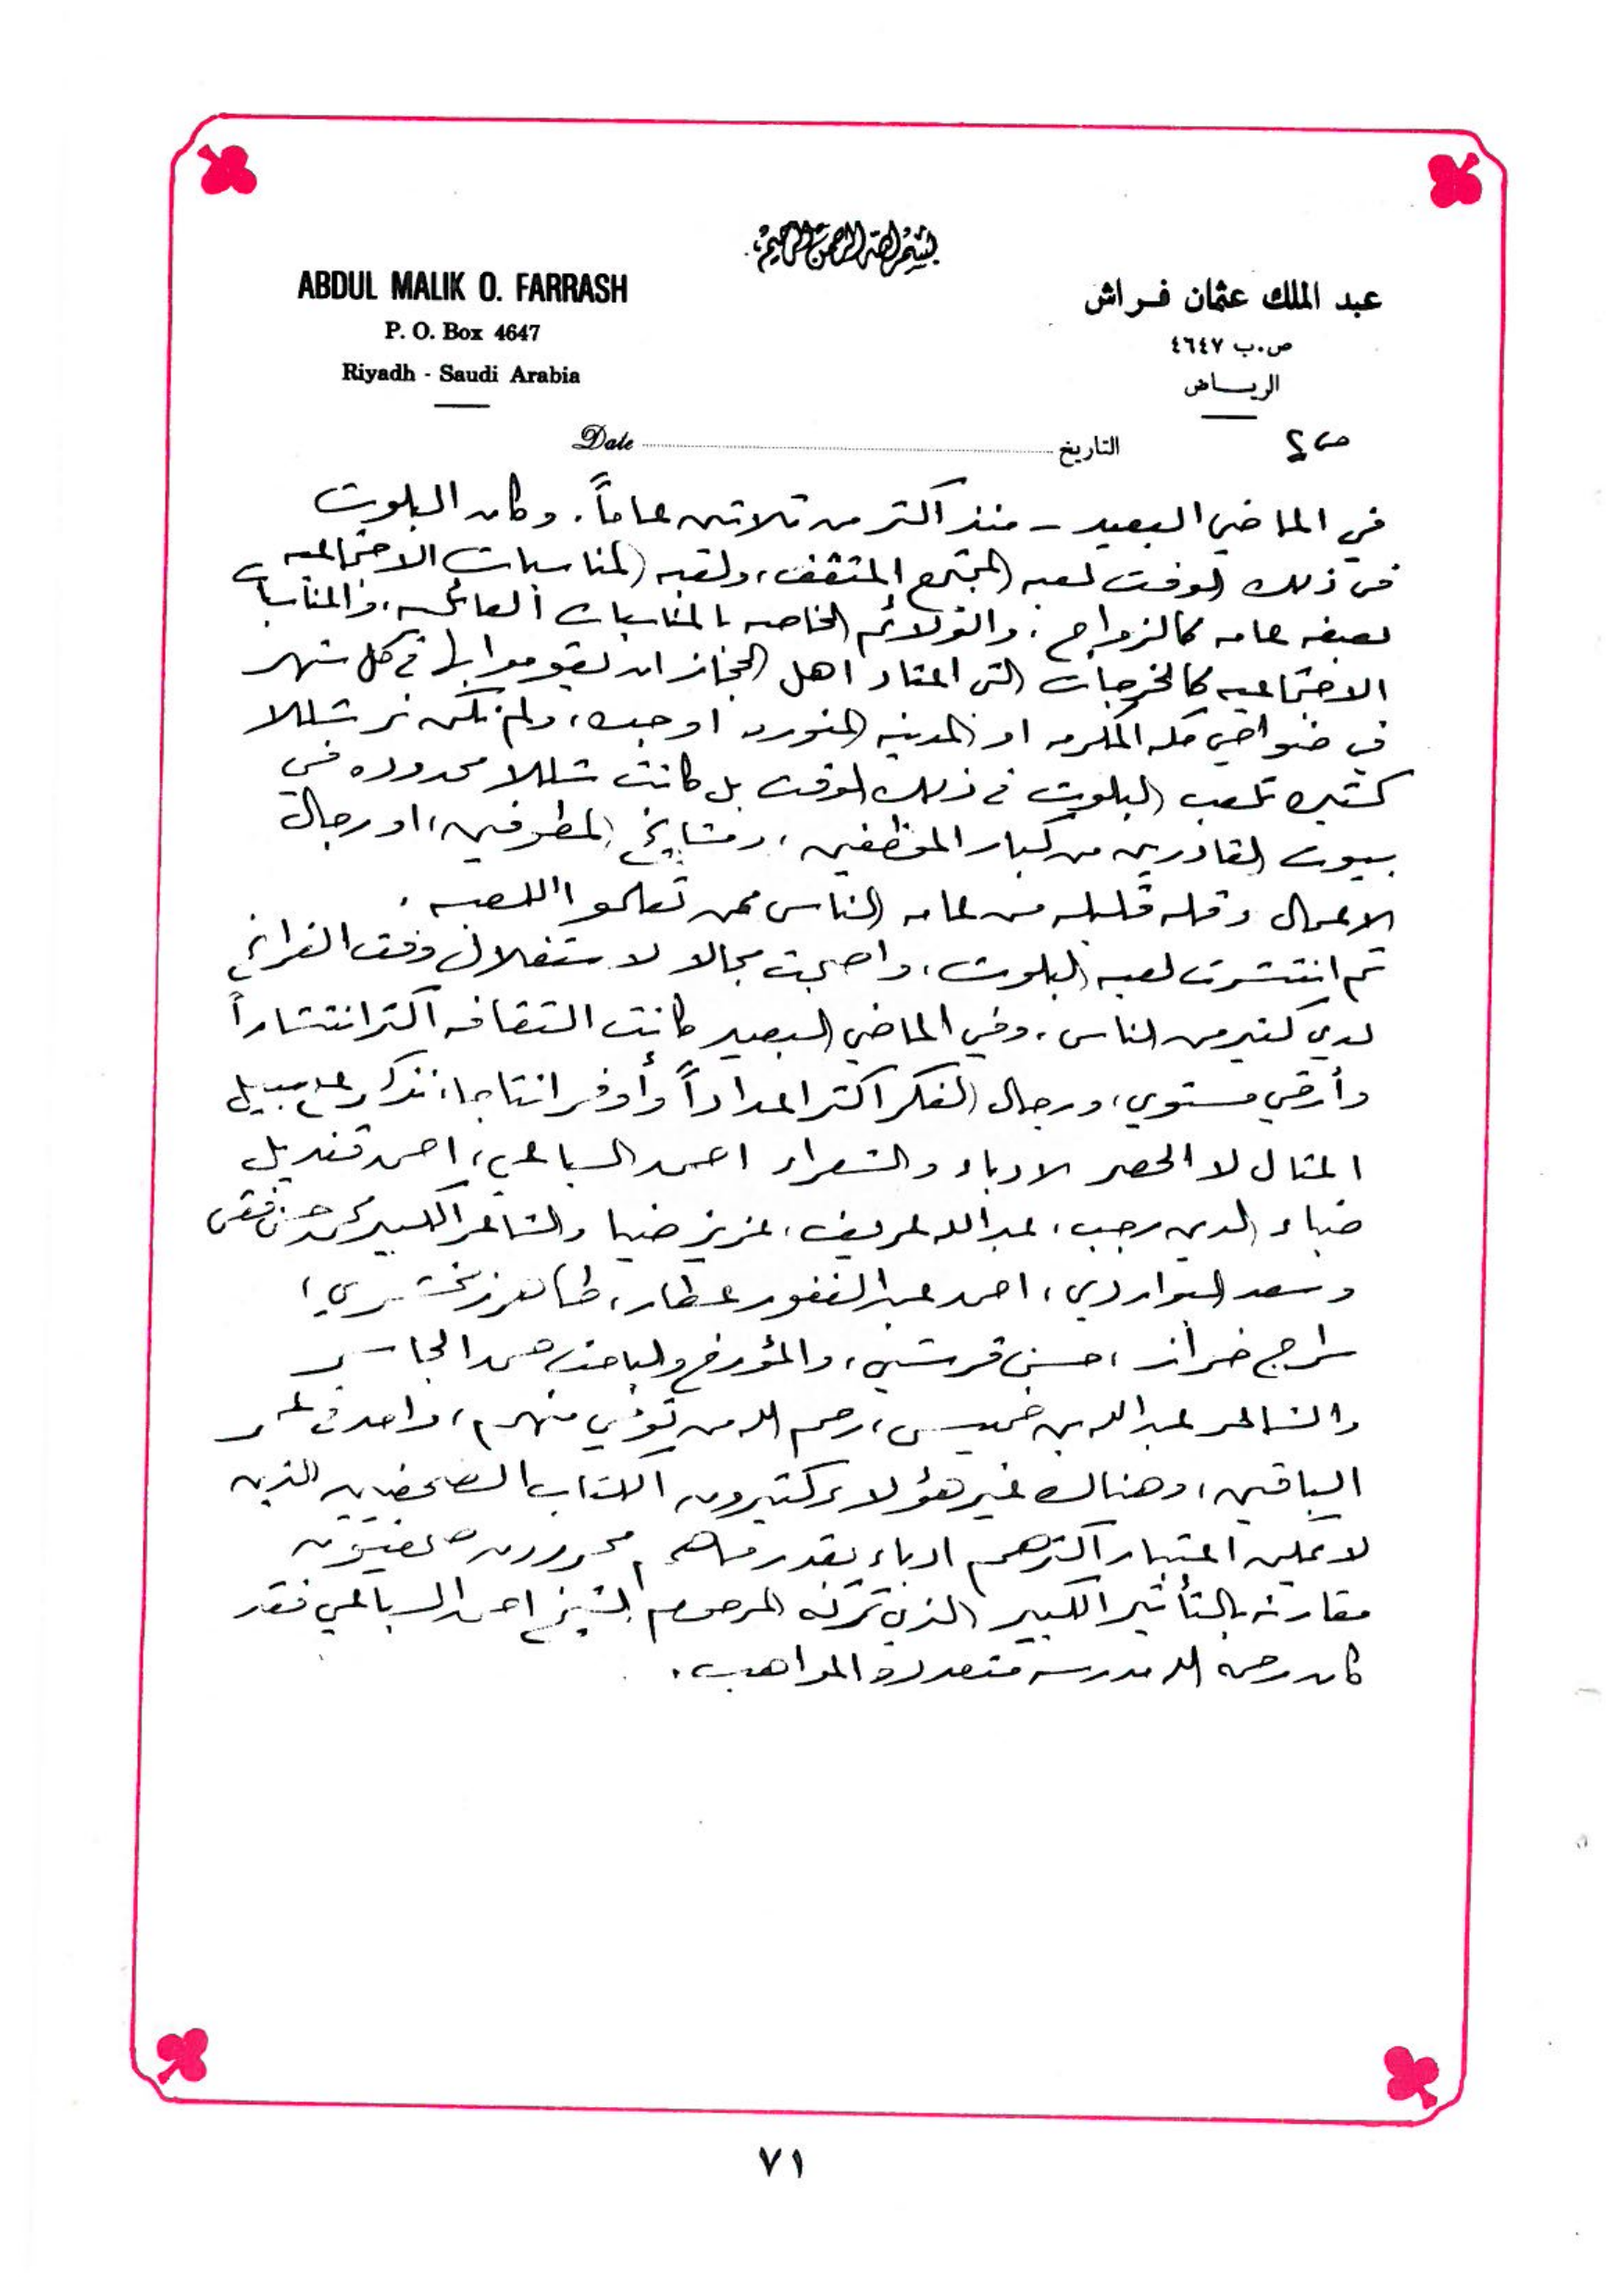 بسم الله الرحمن الرحيم
ABDUL MALIK O. FARRASH
P. O. Box 4647
Riyadh - Saudi Arabia
عبد الملك عثمان فراش
ص.ب ٤٦٤٧
الرياض
Date التاريخ
ص ٢
في الماضي البعيد - منذ أكثر من ثلاثين عاماً. وكان البلوت
في ذلك الوقت لعبه المجتمع المثقف، ولعبه المناسبات الاجتماعيه
بصفه عامه كالزواج، والولائم الخاصه بالمناسبات العائليه، والمناسبات
الاجتماعيه كالخرجات التي اعتاد اهل الحجاز ان يقوموا بها في كل شهر
في ضواحي مكه المكرمه او المدينه المنوره او جده، ولم نكن نر شللا
كثيره تلعب البلوت في ذلك الوقت بل كانت شللا محدوده في
بيوت القادرين من كبار الموظفين، ومشايخ المطوفين، او رجال
الاعمال وقله قليله من عامه الناس ممن تعلموا اللعبه.
ثم انتشرت لعبه البلوت، واصبحت مجالا لاستغلال وقت الفراغ
لدي كثير من الناس، وفي الماضي البعيد كانت الثقافه اكثر انتشاراً
وأرقي مستوي، ورجال الفكر اكثر اعداداً وأوفر انتاجا، نذكر علي سبيل
المثال لا الحصر الادباء والشعراء احمد السباعي، احمد قنديل
ضياء الدين رجب، عبدالله عريف، عزيز ضيا والشاعر الكبير محمد حسن فقي
وسعد البواردي، احمد عبدالغفور عطار، طاهر زمخشري،
سراج خراز، حسن قرشي، والمؤرخ والباحث حمد الجاسر
والشاعر عبدالله بن خميس، رحم الله من توفي منهم، وامد في عمر
الباقين، وهناك غير هؤلاء كثيرون الكتاب الصحفيين الذين
لا يمكن اعتبار اكثرهم ادباء بقدر ماهم محررون صحفيون
مقارنه بالتأثير الكبير الذي تركه المرحوم الشيخ احمد السباعي فقد
كان رحمه الله مدرسه متعددة المواهب.
٧١